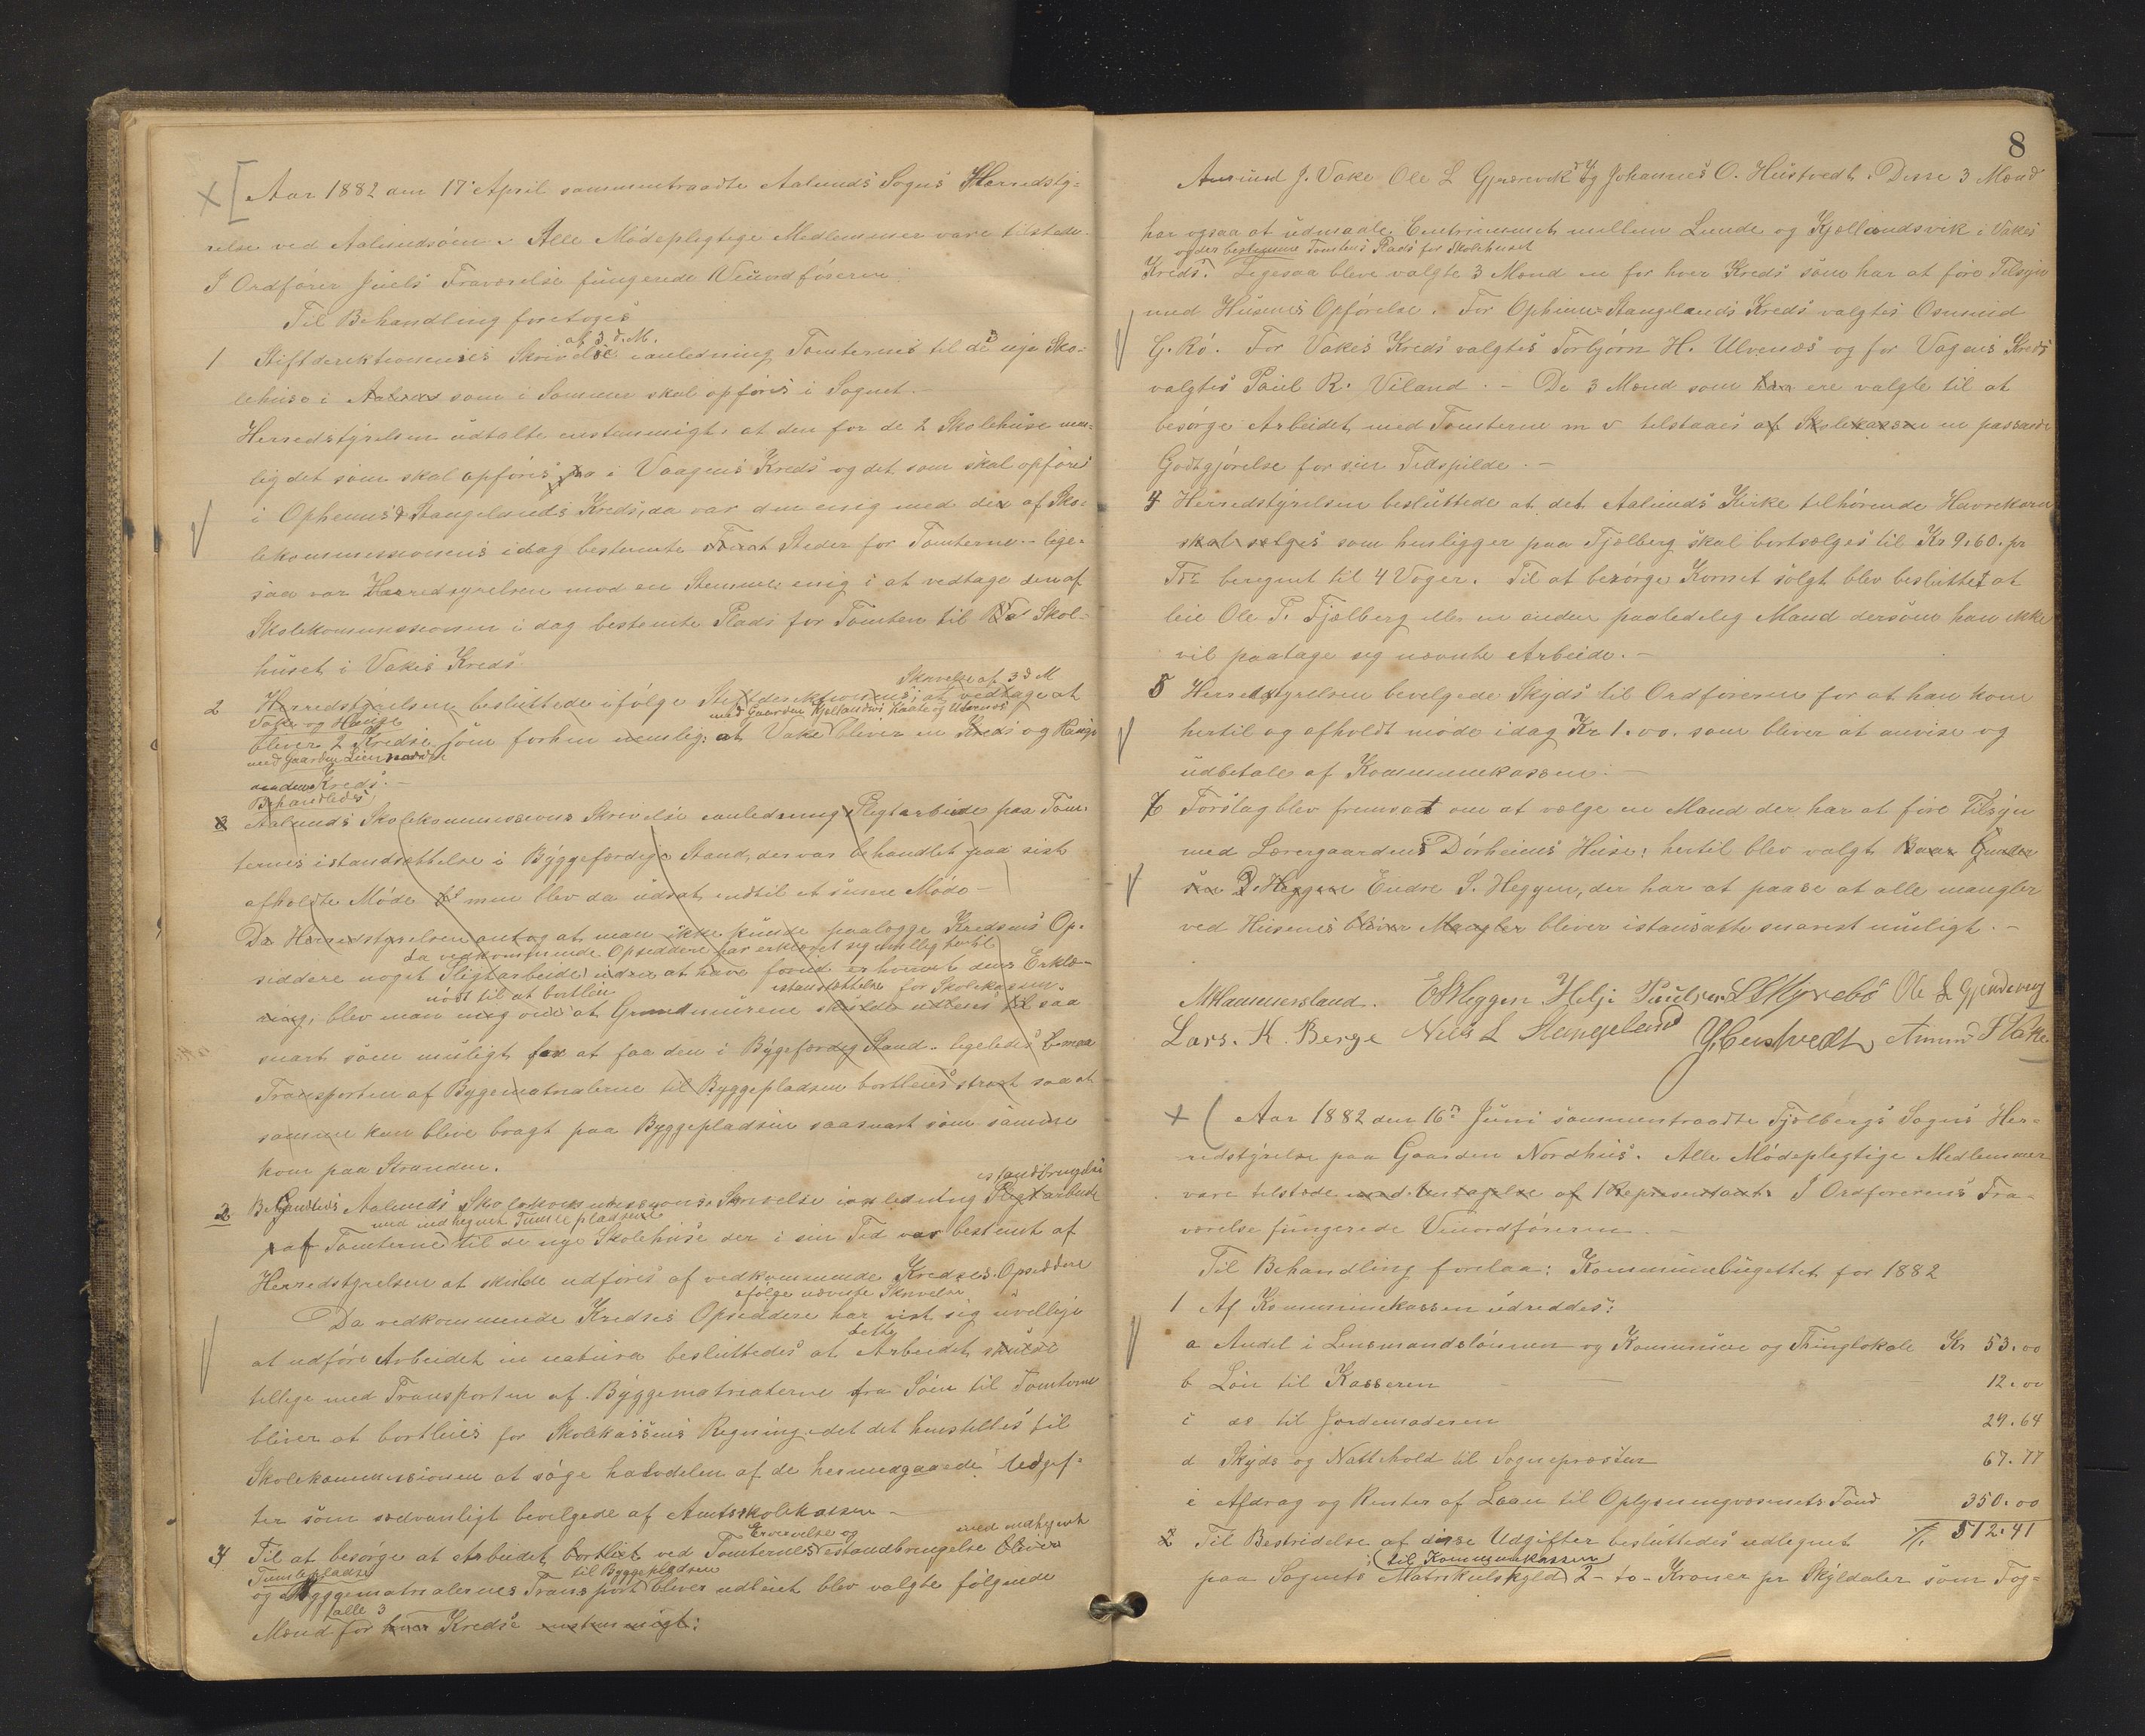 Aar 1882 den 17de April sammentraadte Aalunds Sogns Herredsty-
relse ved Aalundsöen. Alle Mödepligtege Medlemmer vare tilstede.
I Ordförer Juels Fraværelse fungerede Viceordföreren.
Til Behandling foretoges
af 3 d. M.
1 Stiftdirektionens Skrivelse i anledning Tomternes til de 3 nye Sko-
lehuse i Aalunds som i Sommer skal opföres i Sognet. -
Herredstyrelsen udtalte enstemmigt, at den for de 2 Skolehuse nem-
lig det som skal opföres paa i Vaagens Kreds og det som skal opföres
i Ophems & Stangelands Kreds, da var den enig med de af Sko-
lekommissionens idag bestemte Steder for Tomterne. - lige-
saa var Herredsyrelsen mod en Stemme enig i at vedtage den af
Skolekommissionen i dag bestemte Plads for Tomten til Skol-
huset i Vakes Kreds
Skrivelse af 3 d M
2 Herredstyrelsen besluttede ifölge Stiftdirektionens at vedtage at
Vake og Hauge med Gaarden Kjellandsvi Kaate og Ulvenæs
bliver 2 Kredse som forhen nemlig: at Vake bliver en Kreds og Haugs
med Gaarden Lien
anden Kreds. -
Behandledes
3 Aalunds Skolekommissions Skrivelse i anledning Pligtarbeide paa Tom-
ternes istandsættelse i Byggefærdige Stand, der var behandlet paa sist
afholdte Möde men blev da udsat indtil et senere Möde -
Da Herredstyrelsen antog at man ikke kunde paalægge Kredsens Op-
da vedkommende Opsiddere har erklæret sig uvillig hertil
siddere noget Pligtarbeide uden at have forud erhvervet deres Erklæ-
nödt til at bortleie istansættelse for Skolekassen.
ring, blev man enig om at Grundmurene skulde udleies saa
snart som muligt for at faa den i Bygefærdig Stand. ligeledes
Transporten af Bygematrialerne til Byggepladsen bortleies strax saa at
samme kan bleve bragt paa Byggepladsen saasnart som samme
kom paa Stranden.
istandbringelse
2 Behandledes Aalunds Skolekommissions Skrivelse i anledning Pligtarbeide
med indhegnet Tumlepladsene
af Tomterne til de nye Skolehuse der i sin Tid var bestemt af
Herredstyrelsen at skulde udföres af vedkommende Kredses Opsiddere
ifölge nævnte Skrivelse
Da vedkommende Kredses Opsiddere har vist sig uvellige
dette
at udföre Arbeidet in natura besluttedes at Arbeidet skulde
tillige med Transporten af Byggematrialerne fra Söen til Tomterne
bliver at bortleies for Skolekassens Regning idet det henstilles til
Skolekommissionen at söge halvdelen af de hermedgaaede Udgif-
ter som sædvanligt bevelgede af Amtsskolekassen -
Ervervelse og med indhegnet
3 Til at besörge at Arbeidet bortleiet ved Tomternes istandbringelse bliver
Tumlepladse til Byggepladsen
og Byggematrialernes Transport bliver udleiet blev valgte følgende
alle 3
Mænd for hver Kredse enstemmigt:
8
Amund J. Vake Ole L Gjerevik og Johannes O. Hustvedt. Disse 3 Mænd
har ogsaa at udmaale Centrummet mellem Lunde og Kjellandsvik i Vakes
og der bestemme Tomtens Plads for Skolehuset
Kreds. Legesaa bleve valgte 3 Mænd en for hver Kreds som har at före Tilsyn
med Husenes Opförelse. For Opheim-Stangelands Kreds valgtes Osmund
G. Rö. For Vakes Kreds valgtes Torbjörn H. Ulvenæs og for Vagens Kreds
valgtes Poul R. Viland. - De 3 Mænd som har ere valgte til at
besörge Arbeidet med Tomterne m v tilstaaes af Skolekassen en passende
Godtgjörelse for sin Tidspilde. -
4 Herredstyrelsen besluttede at det Aalunds Kirke tilhörende Havrekorn
skal sælges som henligger paa Fjælberg skal bortsælges til Kr 9.60. pr
Tde beregnet til 4 Voger. Til at besörge Kornet solgt blev besluttet at
leie Ole T. Fjælberg eller en anden paaledelig Mand dersom han ikke
vil paatage seg nævnte Arbeide. -
5 Herredstyrelsen bevelgede Skyds til Ordföreren for at han kom
hertil og afholdt möde idag Kr 1.00. som bliver at anvise og
udbetale af Kommunekassen. -
6 Forslag blev fremsat om at vælge en Mand der har at före Tilsyn
med Lærergaardens Dörheims Huse; hertil blev valgt
Heggen Endre S. Heggen, der har at paase at alle mangler
ved Husenes bliver Mangler bliver istansatte snarest muligt. -
M Hammersland. E S Heggen Helje Poulsen L S Myrebö Ole L Gjerdevig
Lars. H. Berge Nels L Stangeland J Hustvedt Amund J Vake
Aar 1882 den 16de Juni sammentraadte Fjelbergs Sogns Her-
redstyrelse paa Gaarden Nordhus. Alle Mödepligtige Medlemmer
vare tilstede med Untagelse af 1 Repræsentant. I Ordförerens Fra-
værelse fungerede Viceordföreren. -
Til Behandling forelaa: Kommunebugettet for 1882
1 Af Kommunekassen udreddes:
a Andel i Lensmandslönnen og Kommune og Thinglokale Kr 53.00
b Lön til Kasseren 12.00
c do til Jordemoderen 29.64
d Skyds og Nattehold til Sognepræsten 67.77
e Afdrag og Renter af Laan til Oplysningvæsenets Fond 350.00
2 Til Bestridelse af disse Udgifter besluttedes udlegnet 512.41
til Kommunekassen
paa Sognets Matrikulskyld 2 - to - Kroner pr Skyldaler som Fog-